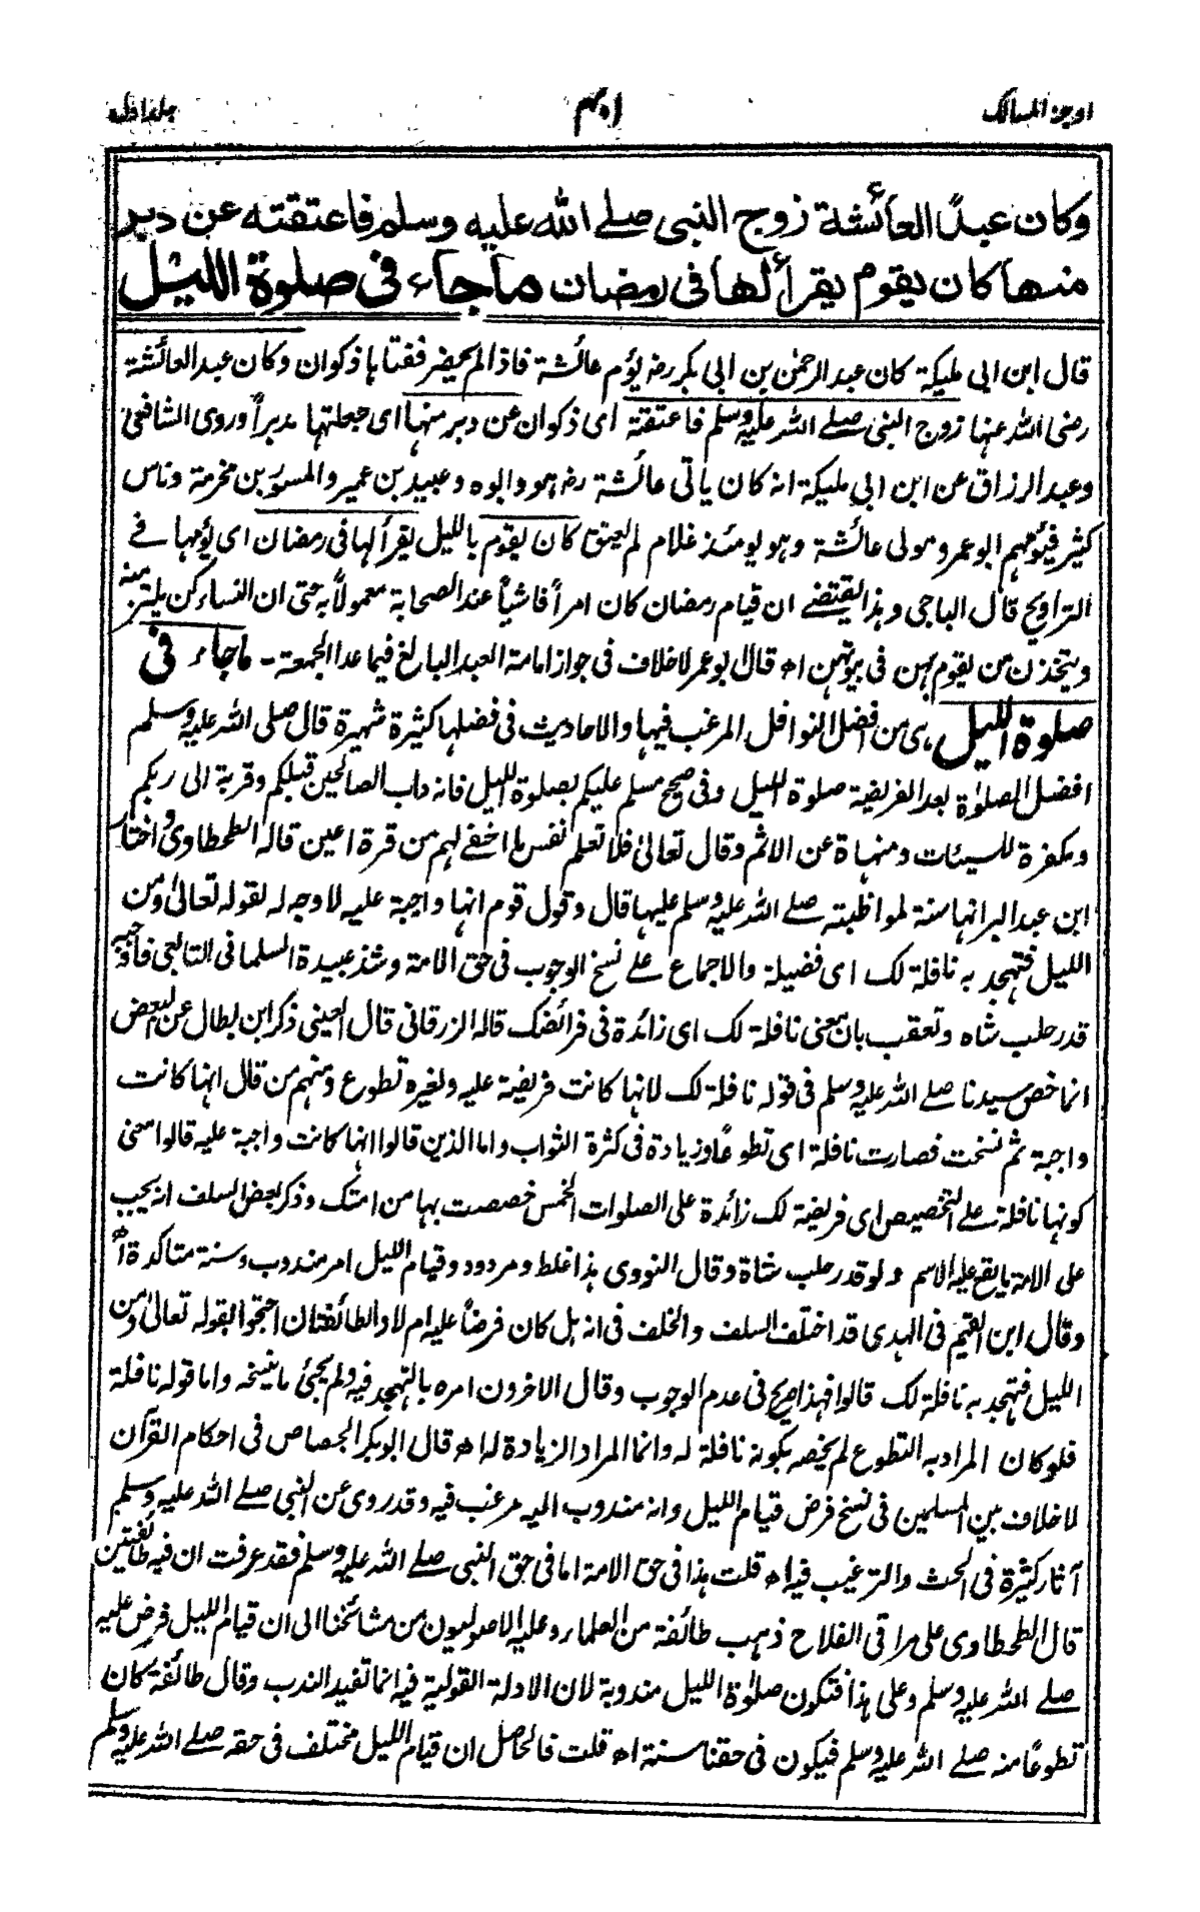 اوجز المسالك ۴۰۱ جلد اول
وكان عبدًا لعائشة زوج النبي صلے الله عليه وسلم فاعتقته عن دبر
منها كان يقوم يقرأ لها فى رمضان ماجاء فى صلوة الليل
قال ابن ابى مليكة كان عبد الرحمٰن بن ابى بكر رض يؤم عائشة فاذا لم يحضر ففتاها ذكوان وكان عبدا لعائشة
رضى الله عنها زوج النبى صلے الله عليه وسلم فاعتقته اى ذكوان عن دبر منها اى جعلتها مدبراً وروى الشافعى
وعبد الرزاق عن ابن ابى مليكة انه كان ياتى عائشة رض هو وابوه وعبيد بن عمير والمسور بن مخرمة وناس
كثير فيؤمهم ابو عمرو مولى عائشة وهو يومئذ غلام لم يعتق كان يقوم بالليل يقرأ لها فى رمضان اى يؤمها فے
التراويح قال الباجى وهذا يقتضے ان قيام رمضان كان امراً فاشياً عند الصحابة معمولاً به حتى ان النساء كن يلتزمنه
ويتخذن من يقوم بهن فى بيوتهن اھ قال ابو عمر لا خلاف فى جواز امامة العبد البالغ فيما عدا الجمعة - ماجاء فى
صلوة الليل هى من افضل النوافل المرغب فيها والاحاديث فى فضلها كثيرة شهيرة قال صلى الله عليه وسلم
افضل الصلوٰة بعد الفريضة صلوة الليل وفى صحيح مسلم عليكم بصلوة الليل فانه داب الصالحين قبلكم وقربة الى ربكم
ومكفرة للسيئات ومنهاة عن الاثم وقال تعالىٰ فلا تعلم نفس ما اخفے لهم من قرة اعين قاله الطحطاوى واختار
ابن عبد البر انها سنة لمواظبته صلے الله عليه وسلم عليها قال وقول قوم انها واجبة عليه لا وجه له لقوله تعالىٰ ومن
الليل فتهجد به نافلة لك اى فضيلة والاجماع علے نسخ الوجوب فى حق الامة وشذ عبيدة السلمانى التابعى فاوجبه
قدر حلب شاه وتعقب بان معنى نافلة لك اى زائدة فى فرائضك قاله الزرقانى قال العينى ذكر ابن بطال عن البعض
انما خص سيدنا صلے الله عليه وسلم فى قوله نافلة لك لانها كانت فريضة عليه ولغيره تطوع ومنهم من قال انها كانت
واجبة ثم نسخت فصارت نافلة اى تطوعًا وزيادة فى كثرة الثواب واما الذين قالوا انها كانت واجبة عليه قالوا معنى
كونها نافلة علے التخصيص اى فريضة لك زائدة على الصلوات الخمس خصصت بها من امتك وذكر بعض السلف انه يجب
على الامة ما يقع عليه الاسم ولو قدر حلب شاة وقال النووى هذا غلط ومردود وقيام الليل امر مندوب وسنة متاكدة اھ
وقال ابن القيم فى الهدى قد اختلف السلف والخلف فى انه هل كان فرضاً عليه ام لا والطائفتان احتجوا بقوله تعالىٰ ومن
الليل فتهجد به نافلة لك قالوا فهذا صريح فى عدم الوجوب وقال الاخرون امره بالتهجد فيه ولم يجئ ما ينسخه واما قوله نافلة
فلو كان المراد به التطوع لم يخصه بكونه نافلة له وانما المراد الزيادة له اھ قال ابو بكر الجصاص فى احكام القرآن
لا خلاف بين المسلمين فى نسخ فرض قيام الليل وانه مندوب اليه مرغب فيه وقد روى عن النبى صلے الله عليه وسلم
آثار كثيرة فى الحث والترغيب فيه اھ قلت هذا فى حق الامة اما فى حق النبى صلے الله عليه وسلم فقد عرفت ان فيه طائفتين
قال الطحطاوى على مراقى الفلاح ذهب طائفة من العلماء وعليه الاصوليون من مشائخنا الى ان قيام الليل فرض عليه
صلے الله عليه وسلم وعلى هذا فتكون صلوٰة الليل مندوبة لان الادلة القولية فيه انما تفيد الندب وقال طائفة كان
تطوعًا منه صلے الله عليه وسلم فيكون فى حقنا سنة اھ قلت فالحاصل ان قيام الليل مختلف فى حقه صلے الله عليه وسلم